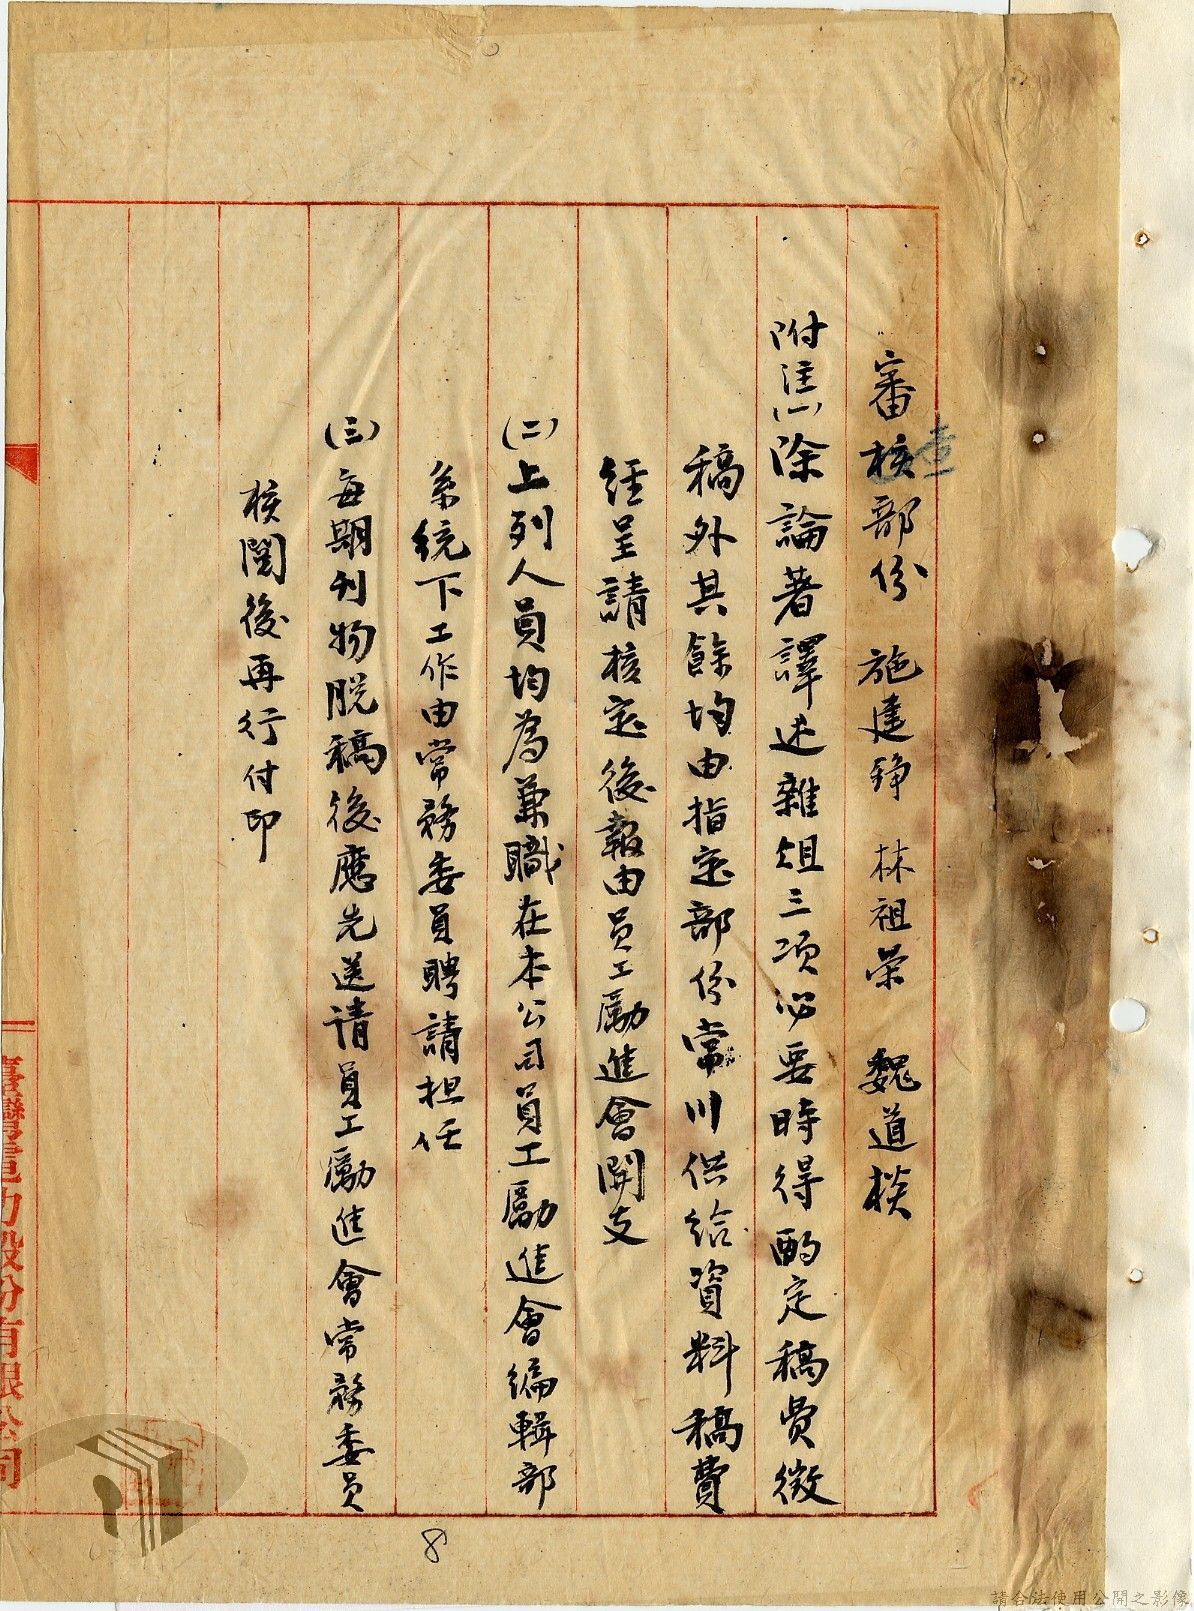 審核部份　施建錚　林祖榮　魏道棪
查
附注(一)除論著譯述雜俎三項必要時得酌定稿費徵
稿外其餘均由指定部份常川供給資料稿費
經呈請核定後報由員工勵進會開支
(二)上列人員均為兼職在本公司員工勵進會編輯部
系統下工作由常務委員聘請担任
(三)每期刊物脫稿後應先送请員工勵進會常務委員
核閱後再行付印
臺灣電力股份有限公司
8
請合法使用公開之影像